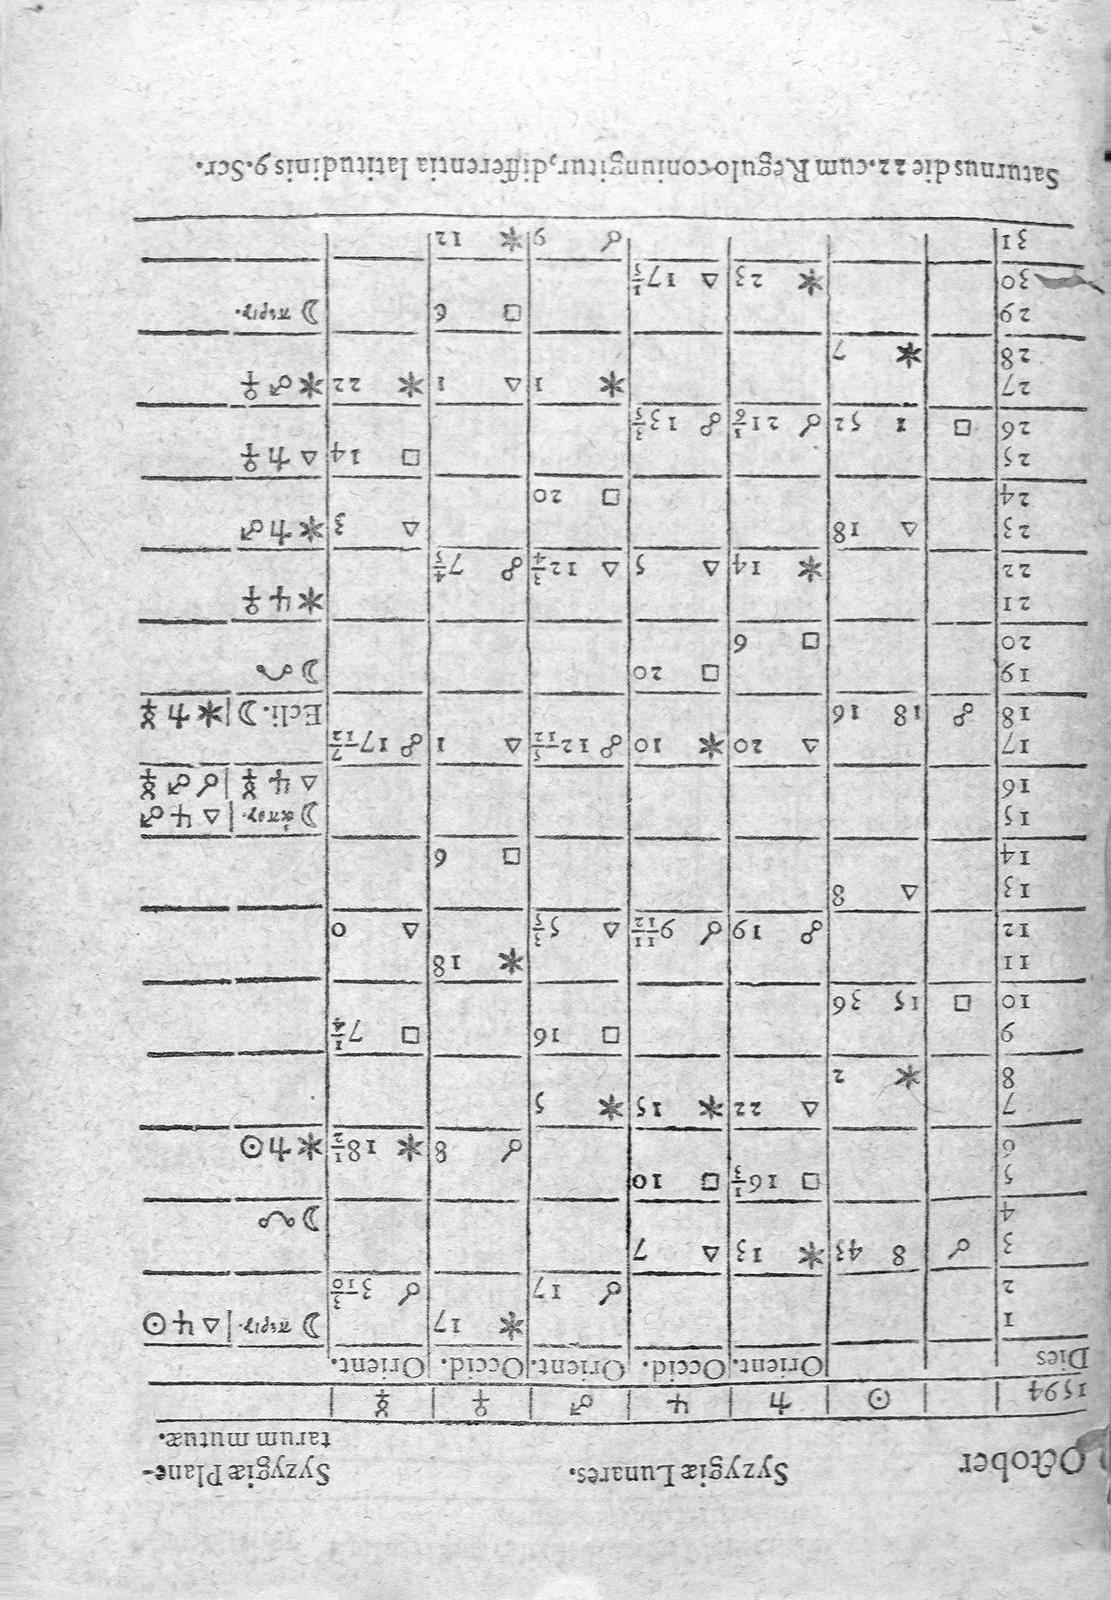 October Syzygiæ Lunares. Syzygiæ Plane-
tarum mutuæ.
1594 ☉ ♄ ♃ ♂ ♀ ☿
Dies Orient. Occid. Orient. Occid. Orient.
1 ⚹ 17 ☽ περιγ. | △ ♃ ☉
2 ☌ 17 ☌ 3 3/10
3 ☌ 8 43 ⚹ 13 △ 7
4 ☽ ☊
5 □ 16 1/3 □ 10
6 ☌ 8 ⚹ 18 1/2 ⚹ ♄ ☉
7 △ 22 ⚹ 15 ⚹ 5
8 ⚹ 2
9 □ 16 □ 7 1/4
10 □ 15 36
11 ⚹ 18
12 ☍ 19 ☌ 9 11/12 △ 5 3/5 △ 0
13 △ 8
14 □ 9
15 ☽ ἀπογ. | △ ♃ ♂
16 △ ♃ ☿ | ☌ ♂ ☿
17 △ 20 ⚹ 10 ☍ 12 5/12 △ 1 ☍ 17 7/12
18 ☍ 18 16 Ecli. ☽ | ⚹ ♄ ☿
19 □ 20 ☽ ☋
20 □ 6
21 ⚹ ♃ ♀
22 ⚹ 14 △ 5 △ 12 3/4 ☍ 7 4/5
23 △ 18 △ 3 ⚹ ♄ ♂
24 □ 20
25 □ 14 △ ♄ ♀
26 □ 1 52 ☌ 21 1/6 ☍ 13 3/5
27 ⚹ 1 △ 1 ⚹ 22 ⚹ ♂ ♀
28 ⚹ 7
29 □ 6 ☽ περιγ.
30 ⚹ 23 △ 17 1/3
31 ☌ 6 ⚹ 12
Saturnus die 22. cum Regulo coniungitur, differentia latitudinis 9. Scr.